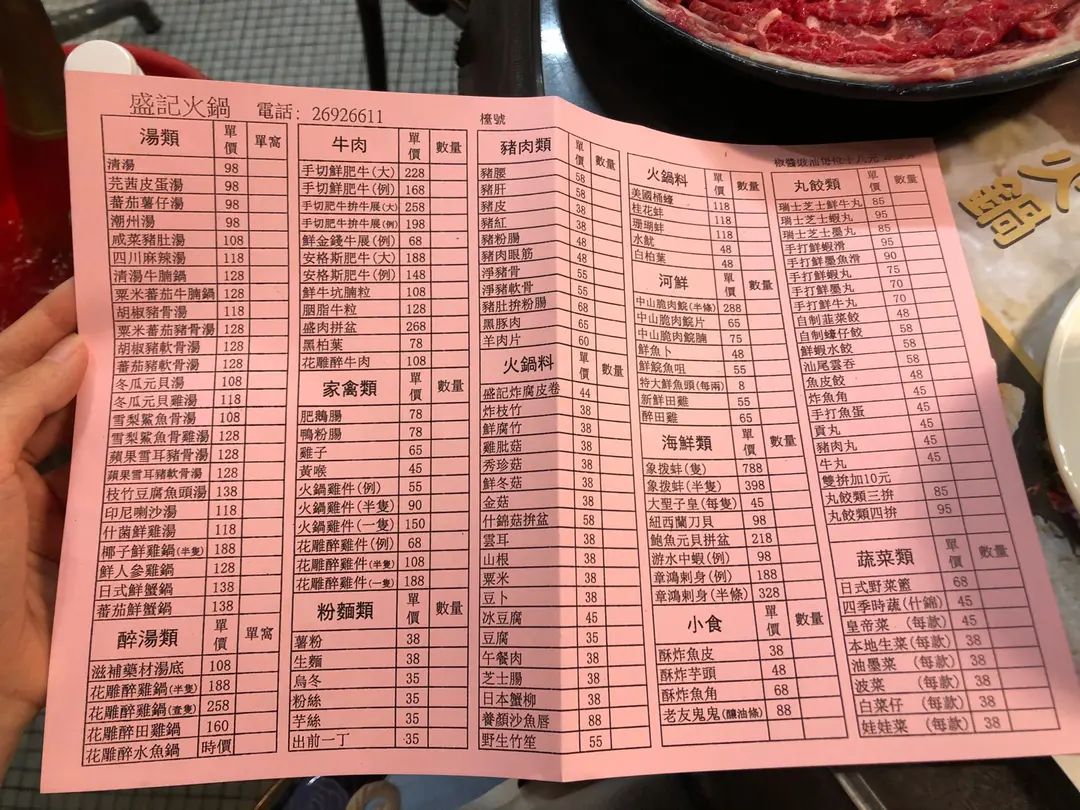 盛記火鍋 電話: 26926611 檯號
湯類 單價 單窩
清湯 98
芫茜皮蛋湯 98
蕃茄薯仔湯 98
潮州湯 98
咸菜豬肚湯 108
四川麻辣湯 118
清湯牛腩鍋 128
粟米蕃茄牛腩鍋 128
胡椒豬骨湯 118
粟米蕃茄豬骨湯 128
胡椒豬軟骨湯 128
蕃茄豬軟骨湯 128
冬瓜元貝湯 108
冬瓜元貝雞湯 118
雪梨鯊魚骨湯 108
雪梨鯊魚骨雞湯 128
蘋果雪耳豬骨湯 128
蘋果雪耳豬軟骨湯 128
枝竹豆腐魚頭湯 138
印尼喇沙湯 118
什菌鮮雞湯 118
椰子鮮雞鍋(半隻) 188
鮮人參雞鍋 128
日式鮮蟹鍋 138
蕃茄鮮蟹鍋 138
醉湯類 單價 單窩
滋補藥材湯底 108
花雕醉雞鍋(半隻) 188
花雕醉雞鍋(壹隻) 258
花雕醉田雞鍋 160
花雕醉水魚鍋 時價
牛肉 單價 數量
手切鮮肥牛(大) 228
手切鮮肥牛(例) 168
手切肥牛拚牛展(大) 258
手切肥牛拚牛展(例) 198
鮮金錢牛展(例) 68
安格斯肥牛(大) 188
安格斯肥牛(例) 148
鮮牛坑腩粒 108
胭脂牛粒 128
盛肉拼盆 268
黑柏葉 78
花雕醉牛肉 108
家禽類 單價 數量
肥鵝腸 78
鴨粉腸 78
雞子 65
黃喉 45
火鍋雞件(例) 55
火鍋雞件(半隻) 90
火鍋雞件(一隻) 150
花雕醉雞件(例) 68
花雕醉雞件(半隻) 108
花雕醉雞件(一隻) 188
粉麵類 單價 數量
薯粉 38
生麵 38
烏冬 35
粉絲 35
芋絲 35
出前一丁 35
豬肉類 單價 數量
豬腰 58
豬肝 58
豬皮 38
豬紅 38
豬粉腸 48
豬肉眼筋 48
淨豬骨 55
淨豬軟骨 55
豬肚拚粉腸 68
黑豚肉 65
羊肉片 60
火鍋料 單價 數量
盛記炸腐皮卷 44
炸枝竹 38
鮮腐竹 38
雞肶菇 38
秀珍菇 38
鮮冬菇 38
金菇 38
什錦菇拚盆 58
雲耳 38
山根 38
粟米 38
豆卜 38
冰豆腐 45
豆腐 35
午餐肉 38
芝士腸 38
日本蟹柳 38
養顏沙魚唇 88
野生竹笙 55
火鍋料 單價 數量
美國桶蠔 118
桂花蚌 118
珊瑚蚌 118
水魷 48
白柏葉 48
河鮮 單價 數量
中山脆肉鯇(半條) 288
中山脆肉鯇片 65
中山脆肉鯇腩 75
鮮魚卜 48
鮮鯇魚咀 55
特大鮮魚頭(每兩) 8
新鮮田雞 55
醉田雞 65
海鮮類 單價 數量
象拨蚌(隻) 788
象拨蚌(半隻) 398
大聖子皇(每隻) 45
紐西蘭刀貝 98
鮑魚元貝拼盆 218
游水中蝦(例) 98
章鴻刺身(例) 188
章鴻刺身(半條) 328
小食 單價 數量
酥炸魚皮 38
酥炸芋頭 48
酥炸魚角 68
老友鬼鬼(釀油條) 88
丸餃類 單價 數量
瑞士芝士鮮牛丸 85
瑞士芝士蝦丸 95
瑞士芝士墨丸 85
手打鮮蝦滑 95
手打鮮墨魚滑 90
手打鮮蝦丸 75
手打鮮墨丸 70
手打鮮牛丸 70
自制韮菜餃 48
自制蠔仔餃 58
鮮蝦水餃 58
汕尾雲吞 58
魚皮餃 48
炸魚角 45
手打魚蛋 45
貢丸 45
豬肉丸 45
牛丸 45
雙拚加10元
丸餃類三拚 85
丸餃類四拚 95
蔬菜類 單價 數量
日式野菜籃 68
四季時蔬(什錦) 45
皇帝菜 (每款) 45
本地生菜(每款) 38
油墨菜 (每款) 38
波菜 (每款) 38
白菜仔 (每款) 38
娃娃菜 (每款) 38
火鍋